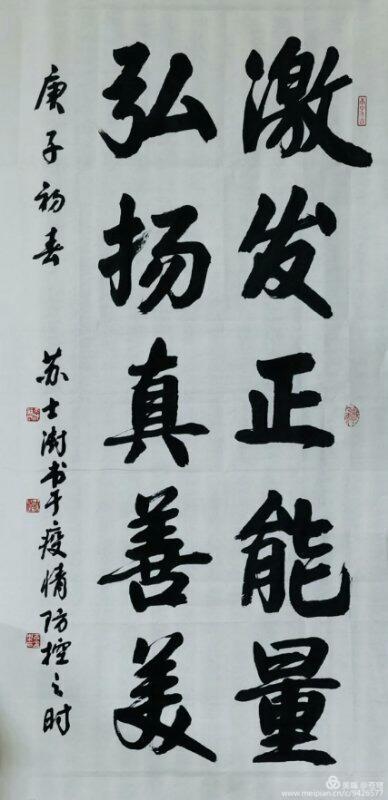 激发正能量
弘扬真善美
庚子初春
苏士澍书于疫情防控之时
美篇
www.meipian.cn/c/9426577